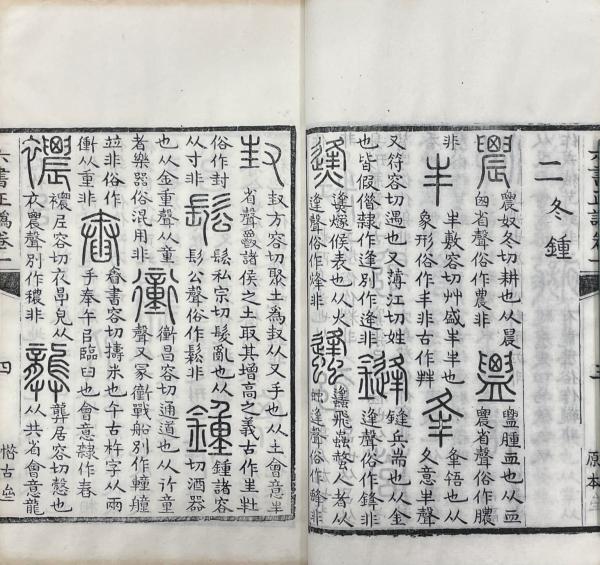 二冬鍾
農奴冬切耕也从晨
囟省聲俗作農非
盥腫血也从血
農省聲俗作膿
丰
丰敷容切艸盛丰丰也
象形俗作丰非古作
夆
夆牾也从
夊意丰聲
又符容切遇也又薄江切姓
也皆假借隸作逢別作逄非
鏠
鏠兵耑也从金
逢聲俗作鋒非
燧候表也从火
逢聲俗作烽非
蠭飛蟲螫人者从
䖵逢聲俗作蜂非
三
原本
封
封方容切聚土為封从又手也从土會意半
省聲爵諸侯之土取其增高之義古作
俗作封
从寸非
鬆私宗切髮亂也从
髟公聲俗作鬆非
鍾
鍾諸容
切酒器
也从金重聲从童
者樂器俗混用非
衝昌容切通道也从行童
聲又冡衝戰船別作艟
竝非俗作
衝从重非
舂
舂書容切擣米也午古杵字从兩
手奉午臨臼也會意隸作舂
襛
襛尼容切衣皃从
衣農聲別作穠非
龔
龔居容切愨也
从共省會意龍
六書正譌卷一
四
恪古